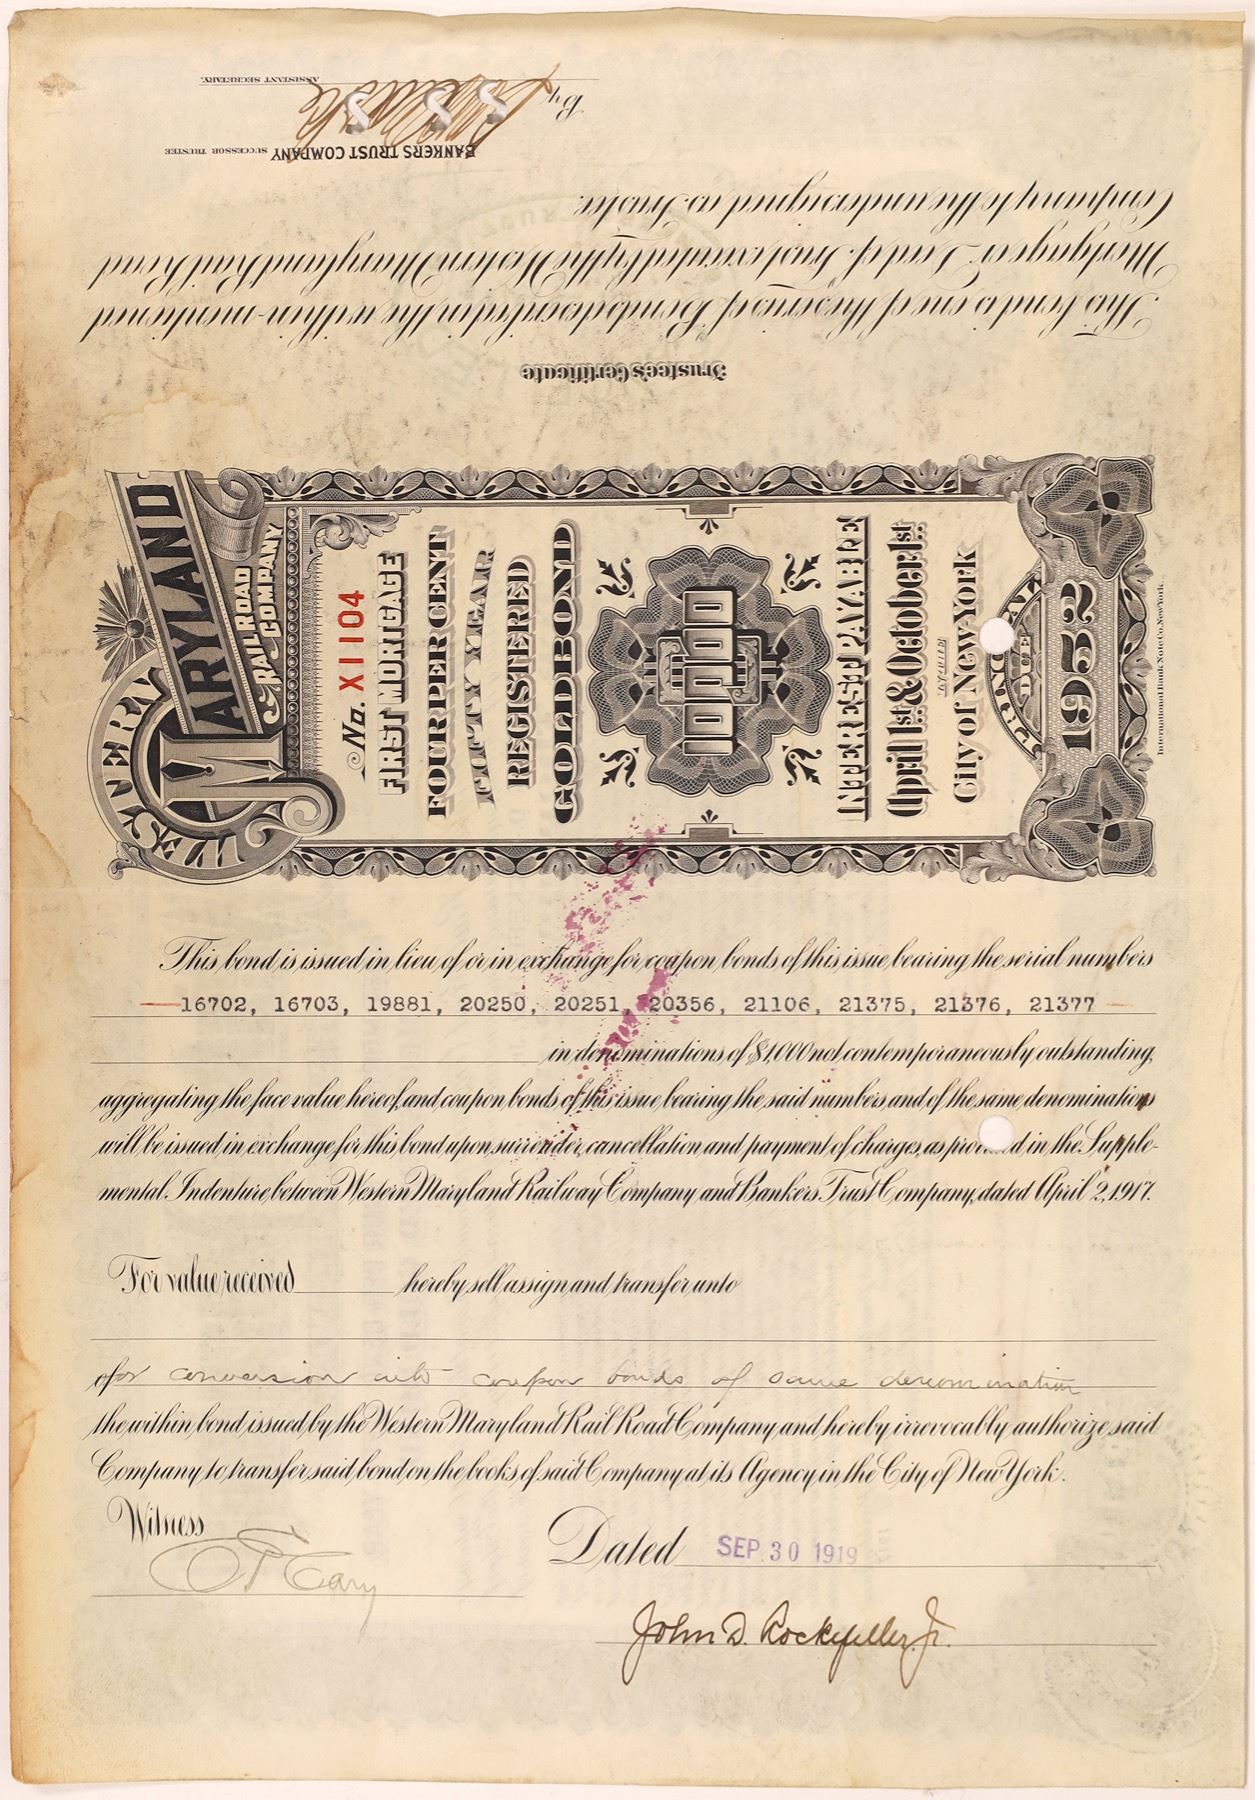 Trustee's Certificate
This bond is one of the series of Bonds described in the within-mentioned
Mortgage or Deed of Trust executed by the Western Maryland Rail Road
Company to the undersigned as Trustee.
BANKERS TRUST COMPANY SUCCESSOR TRUSTEE
By
ASSISTANT SECRETARY.
WESTERN
MARYLAND
RAILROAD
COMPANY
No. X1104
FIRST MORTGAGE
FOUR PER CENT
FIFTY YEAR
REGISTERED
GOLD BOND
10,000
INTEREST PAYABLE
April 1st & October 1st
City of New York
PRINCIPAL
DUE
1952
International Bank Note Co. New York.
This bond is issued in lieu of or in exchange for coupon bonds of this issue bearing the serial numbers
16702, 16703, 19881, 20250, 20251, 20356, 21106, 21375, 21376, 21377
in denominations of $1,000 not contemporaneously outstanding,
aggregating the face value hereof, and coupon bonds of this issue bearing the said numbers and of the same denominations
will be issued in exchange for this bond upon surrender, cancellation and payment of charges, as provided in the Supple-
mental Indenture between Western Maryland Railway Company and Bankers Trust Company, dated April 2, 1917.
For value received hereby sell assign and transfer unto
of for conversion into coupon bonds of same denomination
the within bond issued by the Western Maryland Rail Road Company and hereby irrevocably authorize said
Company to transfer said bond on the books of said Company at its Agency in the City of New York.
Witness
Dated SEP 30 1919
Cary
John D. Rockefeller, Jr.